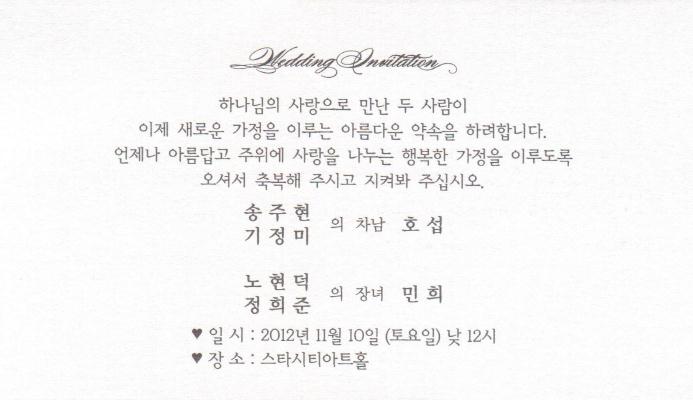 Wedding Invitation
하나님의 사랑으로 만난 두 사람이
이제 새로운 가정을 이루는 아름다운 약속을 하려합니다.
언제나 아름답고 주위에 사랑을 나누는 행복한 가정을 이루도록
오셔서 축복해 주시고 지켜봐 주십시오.
송 주 현
기 정 미 의 차남 호 섭
노 현 덕
정 희 준 의 장녀 민 희
♥ 일 시 : 2012년 11월 10일 (토요일) 낮 12시
♥ 장 소 : 스타시티아트홀